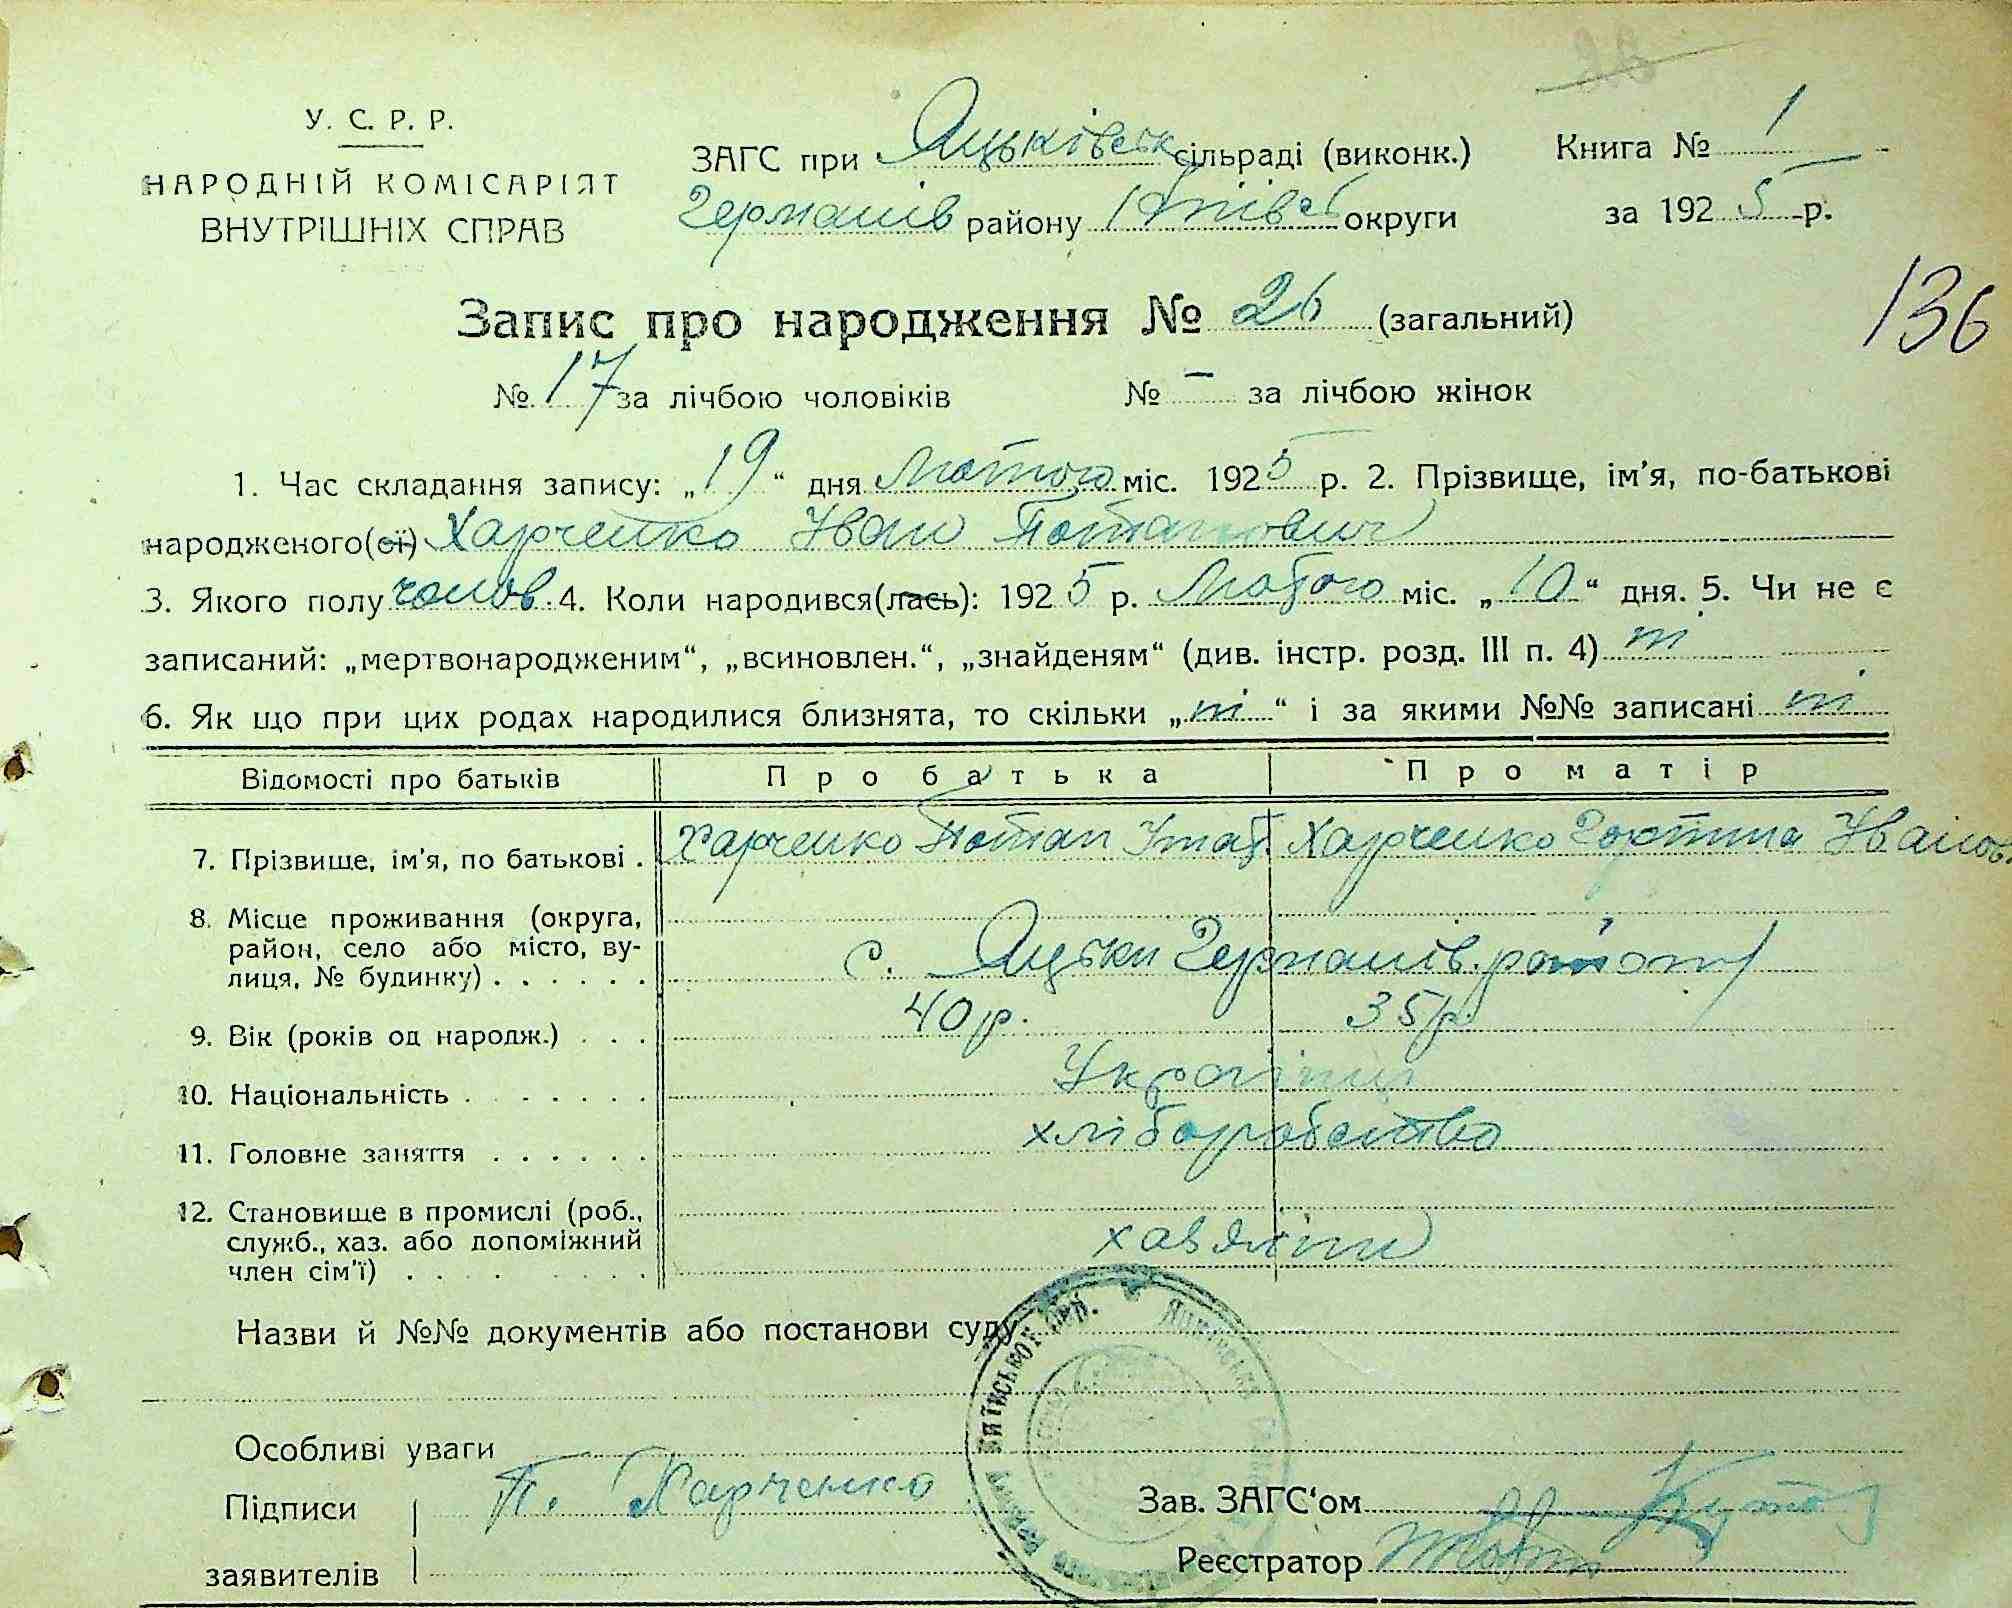 У. С. Р. Р.
НАРОДНІЙ КОМІСАРІЯТ
ВНУТРІШНІХ СПРАВ
ЗАГС при Яцьківськ сільраді (виконк.)
Германів району округи
Книга № 1
за 1925 р.
136
Запис про народження № 26 (загальний)
№ 17 за лічбою чоловіків № – за лічбою жінок
1. Час складання запису: „19“ дня Лютого міс. 1925 р. 2. Прізвище, ім'я, по-батькові
народженого(ої) Харченко Іван Потапович
3. Якого полу чолов. 4. Коли народився(лась): 1925 р. Лютого міс. „10“ дня. 5. Чи не є
записаний: „мертвонародженим“, „всиновлен.“, „знайденям“ (див. інстр. розд. III п. 4) ні
6. Як що при цих родах народилися близнята, то скільки „ні“ і за якими №№ записані ні
Відомості про батьків Про батька Про матір
7. Прізвище, ім'я, по батькові . Харченко Потап Харченко Горпина Іванов.
8. Місце проживання (округа,
район, село або місто, ву-
лиця, № будинку) . . . . . . с. Яцьки Германів. району
9. Вік (років од народж.) . . . 40 р. 35 р.
10. Національність . . . . . . . Українці
11. Головне заняття . . . . . . хліборобство
12. Становище в промислі (роб.,
служб., хаз. або допоміжний
член сім'ї) . . . . . . . хазяїни
Назви й №№ документів або постанови суду
Особливі уваги
Підписи
заявителів
П. Харченко
Зав. ЗАГС‘ом
Реєстратор